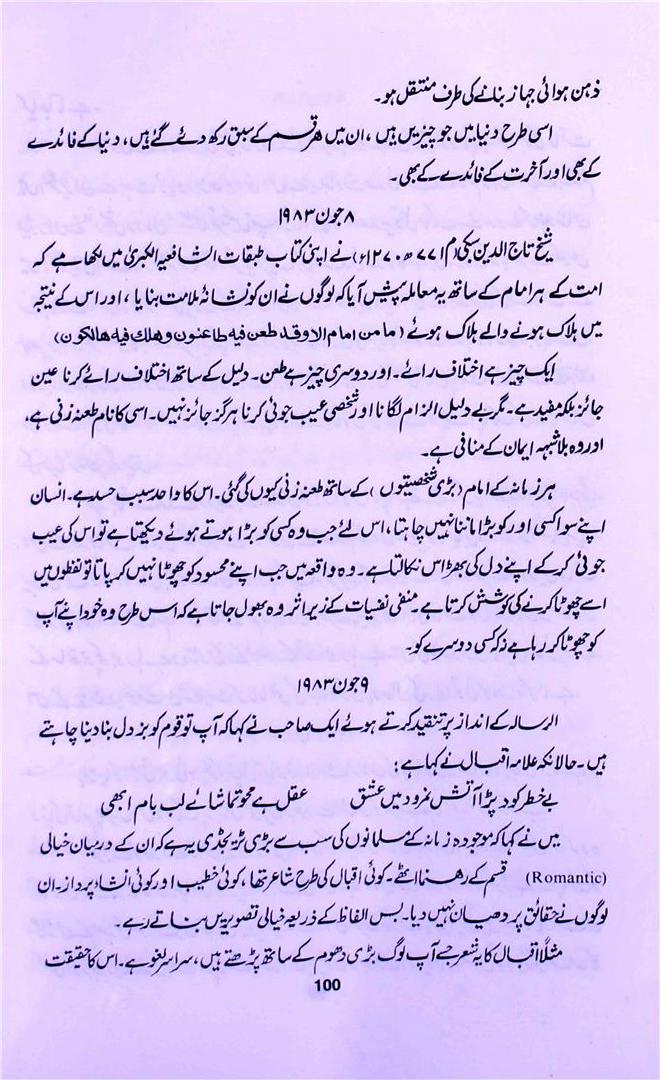 ذہن ہوائی جہاز بنانے کی طرف منتقل ہو۔
اسی طرح دنیا میں جو چیزیں ہیں، ان میں ہر قسم کے سبق رکھ دئے گئے ہیں، دنیا کے فائدے
کے بھی اور آخرت کے فائدے کے بھی۔
۸ جون ۱۹۸۳
شیخ تاج الدین سبکی (م ۷۷۱ھ ۱۲۷۰ء) نے اپنی کتاب طبقات الشافعیہ الکبریٰ میں لکھا ہے کہ
امت کے ہر امام کے ساتھ یہ معاملہ پیش آیا کہ لوگوں نے ان کو نشانۂ ملامت بنایا، اور اس کے نتیجہ
میں ہلاک ہونے والے ہلاک ہوئے (مامن امام الا وقد طعن فيه طاعنون وهلك فيه هالكون)
ایک چیز ہے اختلاف رائے۔ اور دوسری چیز ہے طعن۔ دلیل کے ساتھ اختلاف رائے کرنا عین
جائز بلکہ مفید ہے۔ مگر بے دلیل الزام لگانا اور شخصی عیب جوئی کرنا ہرگز جائز نہیں۔ اسی کا نام طعنہ زنی ہے،
اور وہ بلاشبہہ ایمان کے منافی ہے۔
ہر زمانہ کے امام (بڑی شخصیتوں) کے ساتھ طعنہ زنی کیوں کی گئی۔ اس کا واحد سبب حسد ہے۔ انسان
اپنے سوا کسی اور کو بڑا ماننا نہیں چاہتا، اس لئے جب وہ کسی کو بڑا ہوتے ہوئے دیکھتا ہے تو اس کی عیب
جوئی کر کے اپنے دل کی بھڑاس نکالتا ہے۔ وہ واقعہ میں جب اپنے محسود کو چھوٹا نہیں کر پاتا تو لفظوں میں
اسے چھوٹا کرنے کی کوشش کرتا ہے۔ منفی نفسیات کے زیر اثر وہ بھول جاتا ہے کہ اس طرح وہ خود اپنے آپ
کو چھوٹا کر رہا ہے نہ کسی دوسرے کو۔
۹ جون ۱۹۸۳
الرسالہ کے انداز پر تنقید کرتے ہوئے ایک صاحب نے کہا کہ آپ تو قوم کو بزدل بنا دینا چاہتے
ہیں۔ حالانکہ علامہ اقبال نے کہا ہے:
بے خطر کود پڑا آتش نمرود میں عشق عقل ہے محو تماشائے لب بام ابھی
میں نے کہا کہ موجودہ زمانہ کے مسلمانوں کی سب سے بڑی ٹریجڈی یہ ہے کہ ان کے درمیان خیالی
(Romantic) قسم کے رہنما اٹھے۔ کوئی اقبال کی طرح شاعر تھا، کوئی خطیب اور کوئی انشا پرداز۔ ان
لوگوں نے حقائق پر دھیان نہیں دیا۔ بس الفاظ کے ذریعہ خیالی تصویریں بناتے رہے۔
مثلاً اقبال کا یہ شعر جسے آپ لوگ بڑی دھوم کے ساتھ پڑھتے ہیں، سراسر لغو ہے۔ اس کا حقیقت
100